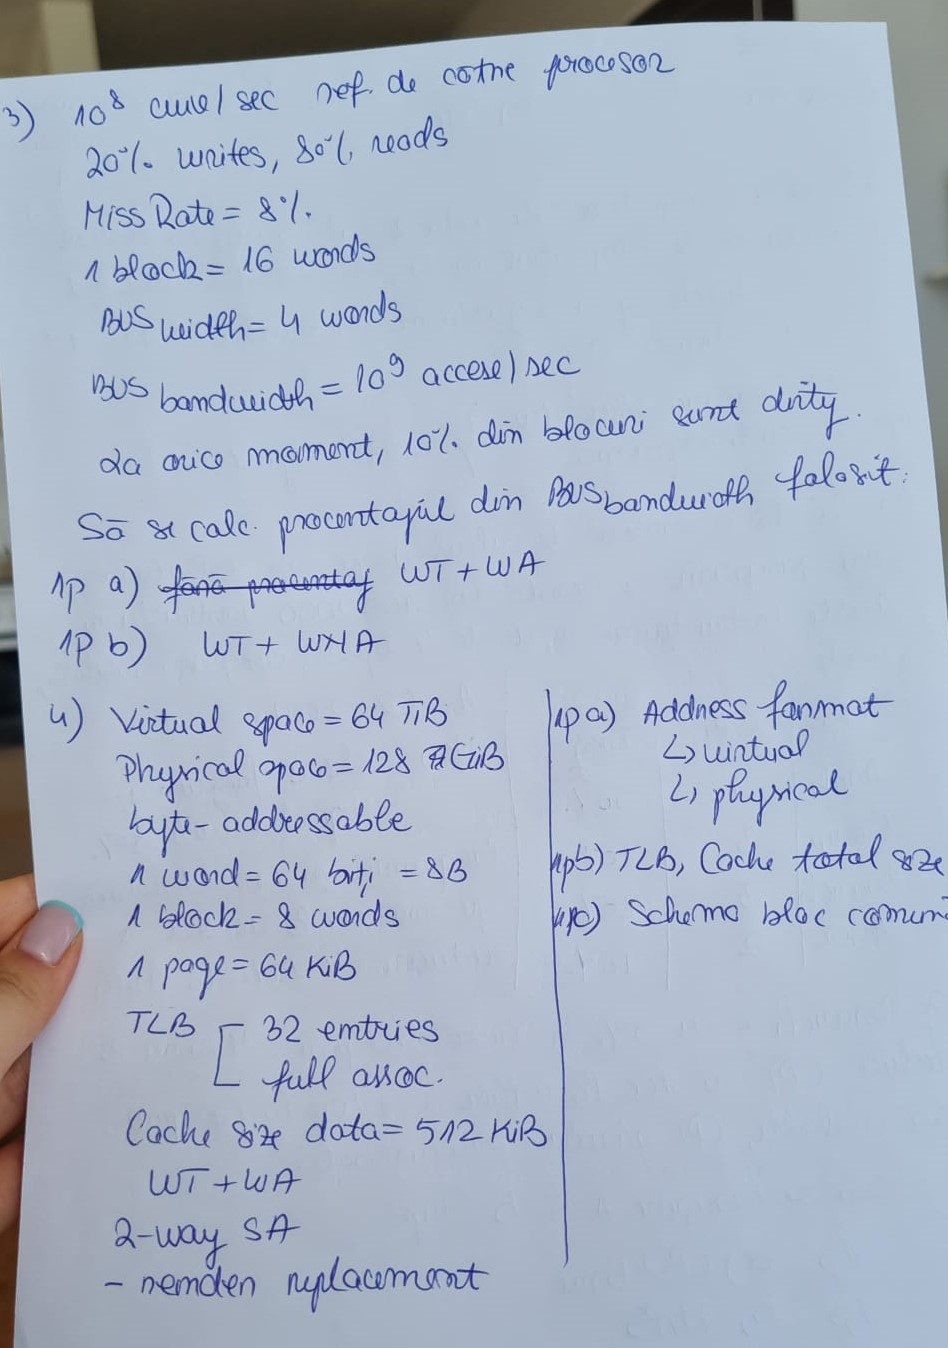 3) 10⁸ cuv/sec ref. de către procesor
20% writes, 80% reads
Miss Rate = 8%.
1 block = 16 words
BUS width = 4 words
BUS bandwidth = 10⁹ accese/sec
La orice moment, 10% din blocuri sunt dirty.
Să se calc. procentajul din BUS bandwidth folosit:
1p a) fără procentaj WT + WA
1p b) WT + WNA
4) Virtual space = 64 TiB
Physical space = 128 GiB
byte-addressable
1 word = 64 biți = 8B
1 block = 8 words
1 page = 64 KiB
TLB 32 entries
full assoc.
Cache size data = 512 KiB
WT + WA
2-way SA
- random replacement
1p a) Address format
↳ virtual
↳ physical
1p b) TLB, Cache total size
1p c) Schema bloc